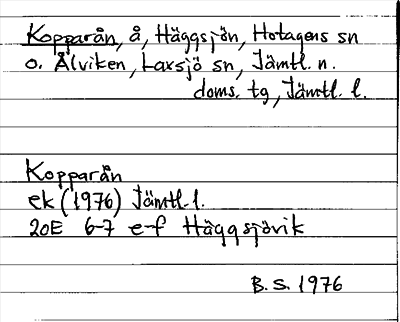 Kopparån, å, Häggsjön, Hotagens sn
o. Ålviken, Laxsjö sn, Jämtl. n.
doms. tg, Jämtl. l.
Kopparån
ek (1976) Jämtl. l.
20E 6-7 e-f Häggsjövik
B.S. 1976